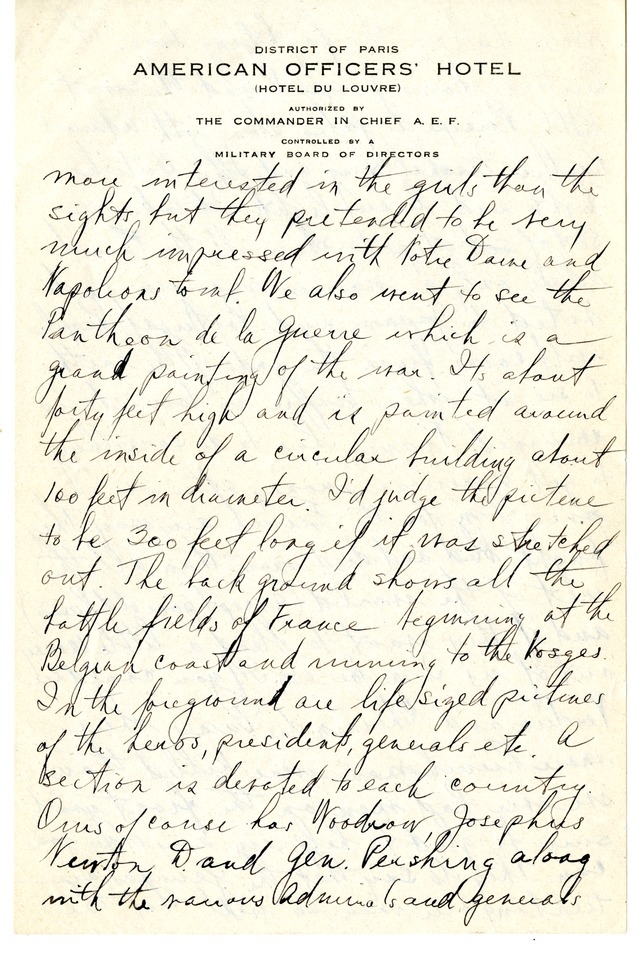 DISTRICT OF PARIS
AMERICAN OFFICERS' HOTEL
(HOTEL DU LOUVRE)
AUTHORIZED BY
THE COMMANDER IN CHIEF A. E. F.
CONTROLLED BY A
MILITARY BOARD OF DIRECTORS
more interested in the girls than the
sights, but they pretended to be very
much impressed with Notre Dame and
Napoleons tomb. We also went to see the
Pantheon de la Guerre which is a
grand painting of the war. Its about
forty feet high and is painted around
the inside of a circular building about
100 feet in diameter. I'd judge the picture
to be 300 feet long if it was stretched
out. The back ground shows all the
battle fields of France beginning at the
Belgian coast and running to the Vosges.
In the foreground are life sized pictures
of the heros, presidents, generals etc. A
section is devoted to each country.
Ours of course has Woodrow, Josephus
Newton D. and Gen. Pershing along
with the various Admirals and generals